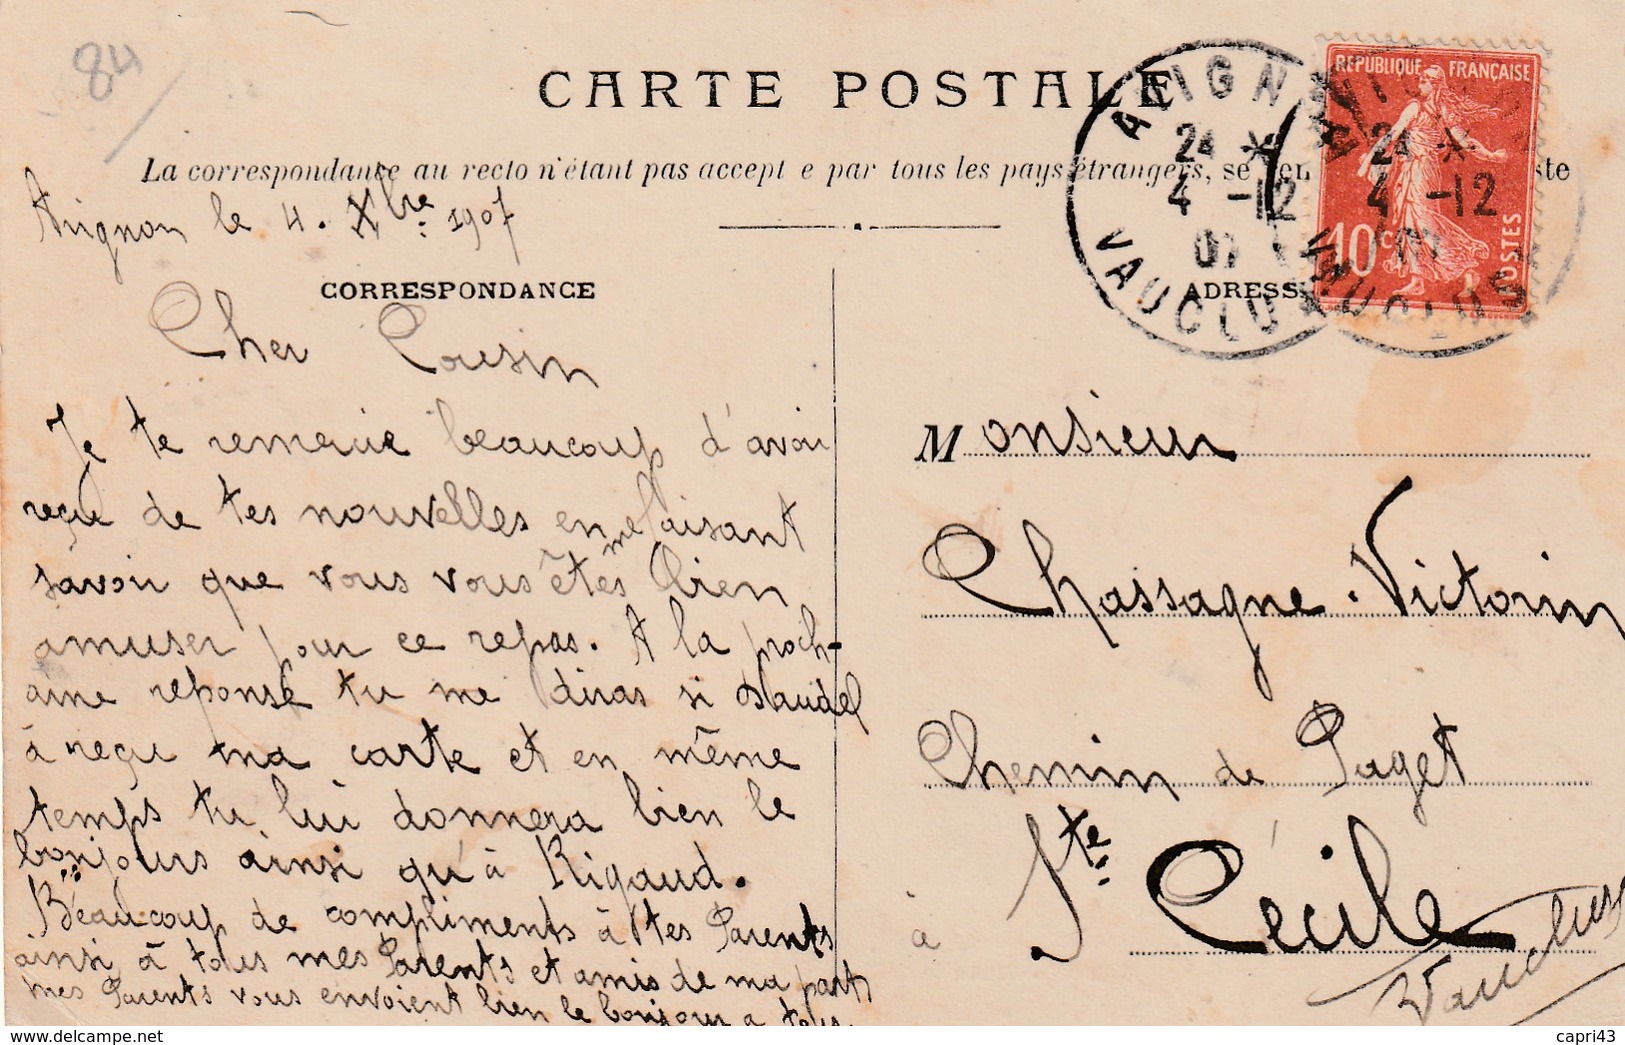 84
CARTE POSTALE
La correspondance au recto n'étant pas accept e par tous les pays étrangers, se
Avignon le 4. Xbre 1907
CORRESPONDANCE
Cher Cousin
Je te remercie beaucoup d'avoir
reçu de tes nouvelles en me faisant
savoir que vous vous êtes bien
amuser pour ce repas. A la proch-
aine reponse tu me diras si Daudel
à reçu ma carte et en même
temps tu lui donnera bien le
bonjours ainsi qu'à Rigaud.
Beaucoup de compliments à tes Parents
ainsi à tous mes Parents et amis de ma part
mes Parents vous envoient bien le bonjour a tous
REPUBLIQUE FRANÇAISE
10 c
POSTES
AVIGNON
24 *
4 -12
07
VAUCLUSE
AVIGNON
24 *
4 -12
07
VAUCLUSE
ADRESSE
Monsieur
Chassagne. Victorin
Chemin de Paget
à Ste Cécile
Vaucluse
delcampe.net
capri43